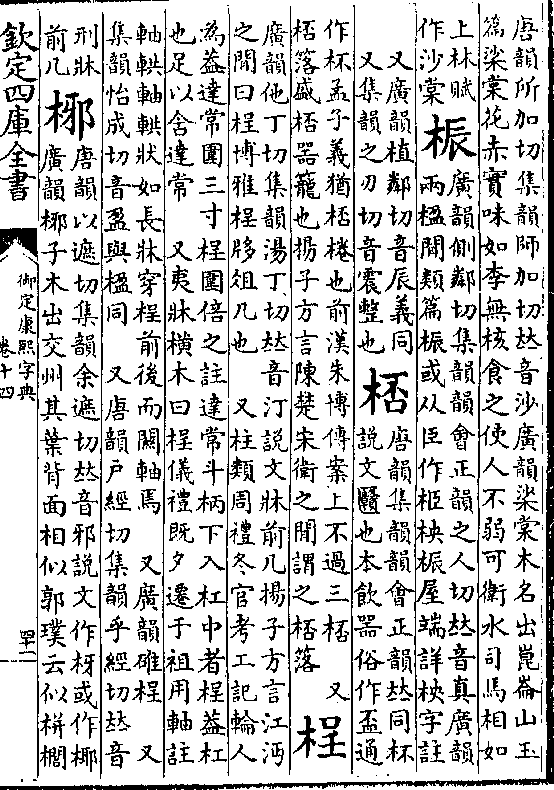 唐韻所加切集韻師加切𠀤音沙廣韻桬棠木名出崑崙山玉
篇桬棠花赤實味如李無核食之使人不弱可衡水司馬相如
上林賦
作沙棠
桭
廣韻側鄰切集韻韻會正韻之人切𠀤音真廣韻
兩楹間類篇桭或从臣作𣐍柍桭屋端詳柍字註
又廣韻植鄰切音辰義同
又集韻之刃切音震整也
桮
唐韻集韻韻會正韻𠀤同杯
說文也本飲器俗作盃通
作杯孟子義猶桮棬也前漢朱博傳案上不過三桮 又
桮落盛桮器籠也揚子方言陳楚宋衛之間謂之桮落
桯
廣韻他丁切集韻湯丁切𠀤音汀說文牀前几揚子方言江沔
之間曰桯博雅桯㡔俎几也 又柱類周禮冬官考工記輪人
為蓋達常圍三寸桯圍倍之註達常斗柄下入杠中者桯蓋杠
也足以含達常 又夷牀橫木曰桯儀禮既夕遷于祖用軸註
軸輁軸輁狀如長牀穿桯前後而關軸焉 又廣韻碓桯 又
集韻怡成切音盈與楹同 又唐韻戶經切集韻乎經切𠀤音
刑牀
前几
梛
唐韻以遮切集韻余遮切𠀤音邪說文作枒或作椰
廣韻梛子木出交州其葉背面相似郭璞云似栟櫚
欽定四庫全書
御定康熙字典
卷十四
四十二